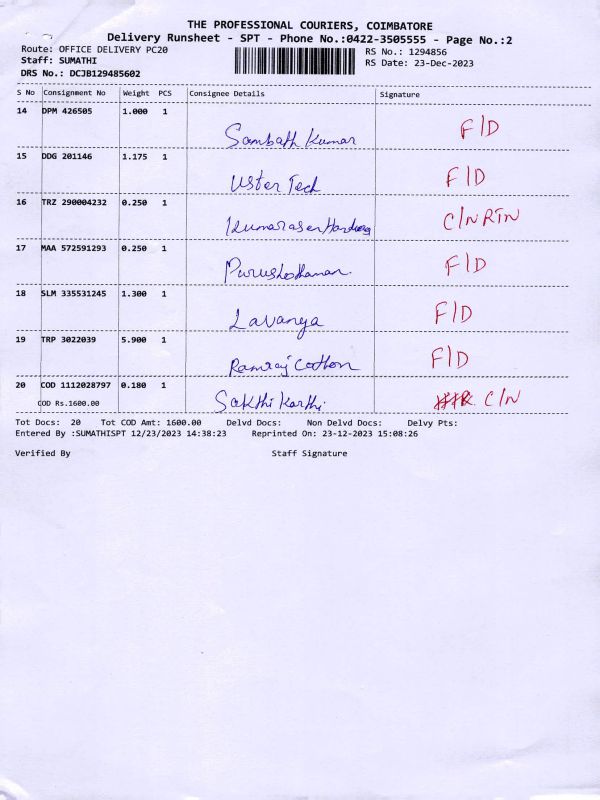 THE PROFESSIONAL COURIERS, COIMBATORE
Delivery Runsheet - SPT - Phone No.:0422-3505555 - Page No.:2
Route: OFFICE DELIVERY PC20 RS No.: 1294856
Staff: SUMATHI RS Date: 23-Dec-2023
DRS No.: DCJB129485602
S No Consignment No Weight PCS Consignee Details Signature
14 DPM 426505 1.000 1
Sambath Kumar F/D
15 DDG 201146 1.175 1
Uster Tech F/D
16 TRZ 290004232 0.250 1
C/N RTN
17 MAA 572591293 0.250 1
Purushothaman. F/D
18 SLM 335531245 1.300 1
Lavanya F/D
19 TRP 3022039 5.900 1
Ramraj Cotton F/D
20 COD 1112028797 0.180 1
COD Rs.1600.00 Sakthi Karthi. C/N
Tot Docs: 20 Tot COD Amt: 1600.00 Delvd Docs: Non Delvd Docs: Delvy Pts:
Entered By :SUMATHISPT 12/23/2023 14:38:23 Reprinted On: 23-12-2023 15:08:26
Verified By Staff Signature